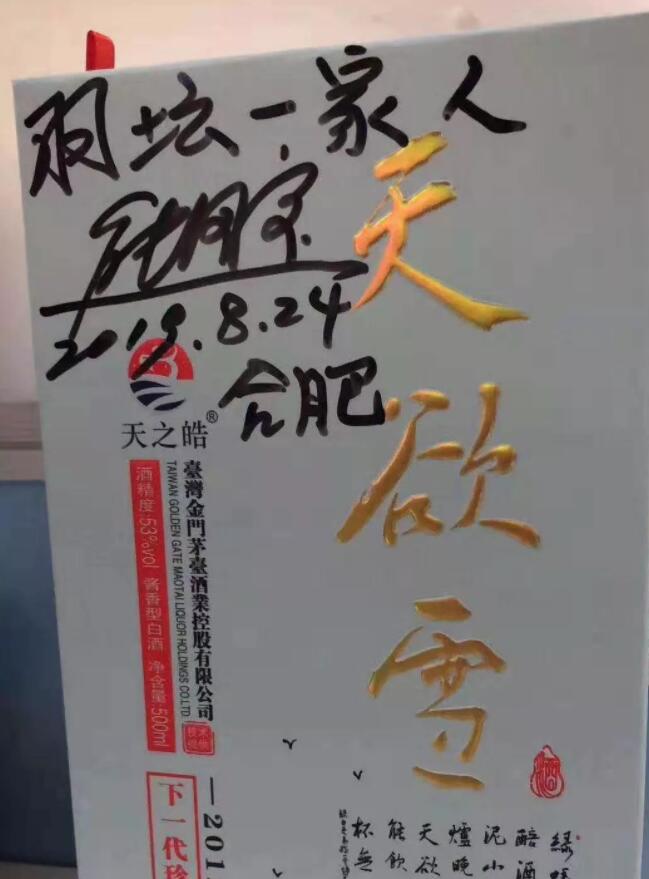 羽坛一家人
熊国宝
2019.8.24
合肥
天欲雪
天之皓®
臺灣金門茅臺酒業控股有限公司
TAIWAN GOLDEN GATE MAOTAI LIQUOR HOLDINGS CO.LTD
酒精度:53%vol 酱香型白酒 净含量:500ml
技术提供
酒
下一代珍
—201
綠
醅酒
泥小
爐晚
天欲
能飲
杯無